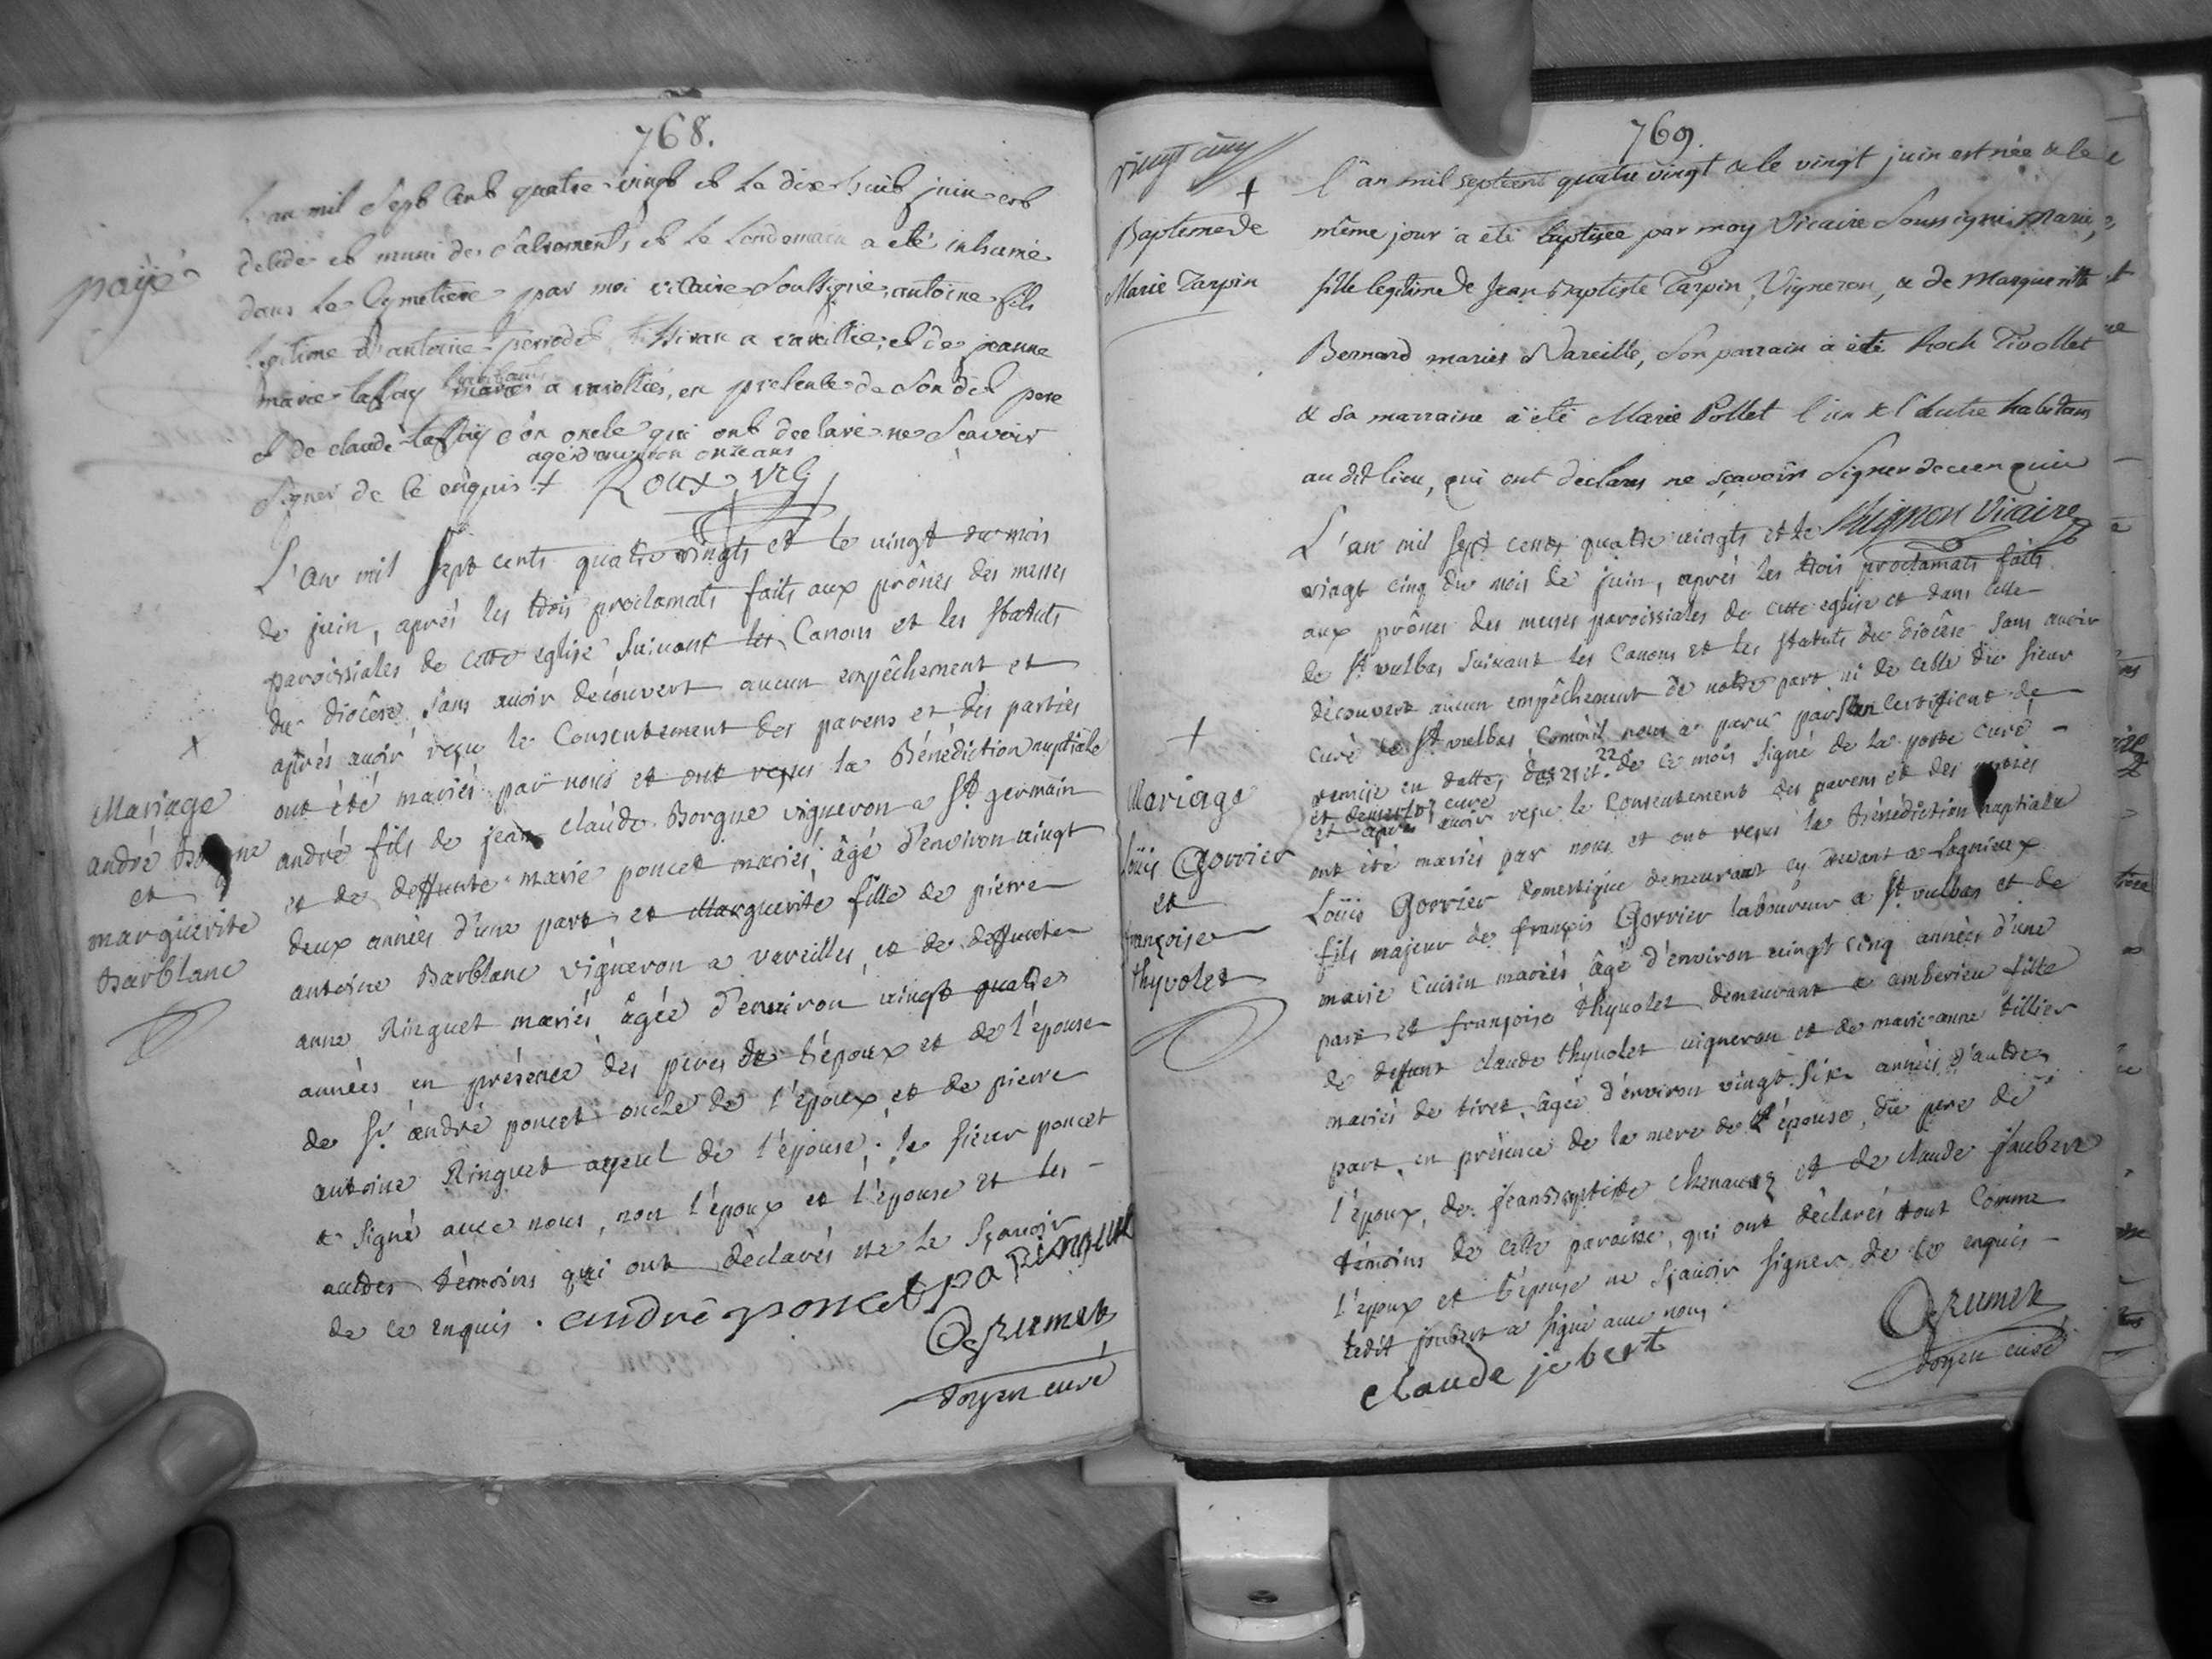 768.
payé
L'an mil Sept Cent quatre vingt et le dix huit juin est
décédé et muni des sacrements et le lendemain a été inhumé
dans le Cymetiere par moi vicaire soussigné, antoine fils
légitime d'antoine tisseran a vareille, et de jeanne
marie laffay a vareilles, en presence de son dit pere
et de claude laffay son oncle qui ont declaré ne sçavoir
agé d'environ onze ans
signer de ce enquis + Roux, vic
L'an mil sept cents quatre vingts et le vingt du mois
de juin, aprés les trois proclamats faits aux prônes des messes
paroissiales de cette eglise suivant les Canons et les statuts
du diocèse sans avoir découvert aucun empêchement et
aprés avoir reçu le Consentement des parens et des parties
ont été mariés par nous et ont reçus la Bénédiction nuptiale
andré fils de jean claude Borgne vigneron a St germain
et de deffunte marie poncet mariés, âgé d'environ vingt
deux années d'une part et Marguerite fille de pierre
antoine Barblanc vigneron a vareilles, et de deffunte
anne Ringuet mariés âgée d'environ vingt quatre
années en présence des peres de l'époux et de l'épouse
de Sr andré poncet oncle de l'époux, et de pierre
antoine Ringuet ayeul de l'épouse; le sieur poncet
a signé avec nous, non l'époux et l'épouse et les
autres témoins qui ont déclarés ne le sçavoir
de ce enquis. andré poncet
doyen curé
+
Mariage
andré Borgne
et
marguerite
Barblanc
769.
vingt cinq
+
Baptême de
Marie Tarpin
L'an mil sept cent quatre vingt & le vingt juin est née & le
même jour a été baptisée par moy Vicaire Soussigné Marie,
fille legitime de Jean Baptiste Tarpin, Vigneron, & de Marguerite
Bernard mariés à Vareille, son parrain a été Roch Tivollet
& sa marraine a été Marie Pollet l'un & l'autre habitans
au dit lieu, qui ont declarés ne sçavoir signer de ce enquis
Mignon Vicaire
L'an mil sept cents quatre vingts et le
vingt cinq du mois de juin, aprés les trois proclamats faits
aux prônes des messes paroissiales de cette eglise et dans celle
de St vulbas suivant les Canons et les statuts du diocèse sans avoir
découvert aucun empêchement de notre part ni de celle du sieur
curé de St vulbas comm'il nous a paru par son certificat de
remise en datte, des 21 et 22 de ce mois signé de la poste curé
et aprés avoir reçu le consentement des parens et des parties
ont été mariés par nous et ont reçus la Bénédiction nuptiale
Loüis Gorrier domestique demeurant cy devant a Lagnieux
fils majeur de françois Gorrier laboureur a St vulbas et de
marie Cuisin mariés âgé d'environ vingt cinq années d'une
part et françoise thyvolet demeurant a amberieu fille
de deffunt claude thyvolet vigneron et de marie anne tillier
mariés de tiret, âgée d'environ vingt six années d'autre
part, en présence de la mere de l'épouse, du pere de
l'époux, de jean Baptiste et de claude jaubert
témoins de cette paroisse, qui ont déclarés tout comme
l'époux et l'épouse ne sçavoir signer de ce enquis
ledit joubert a signé avec nous.
claude jobert
doyen curé
+
Mariage
Loüis Gorrier
et
françoise
thyvolet